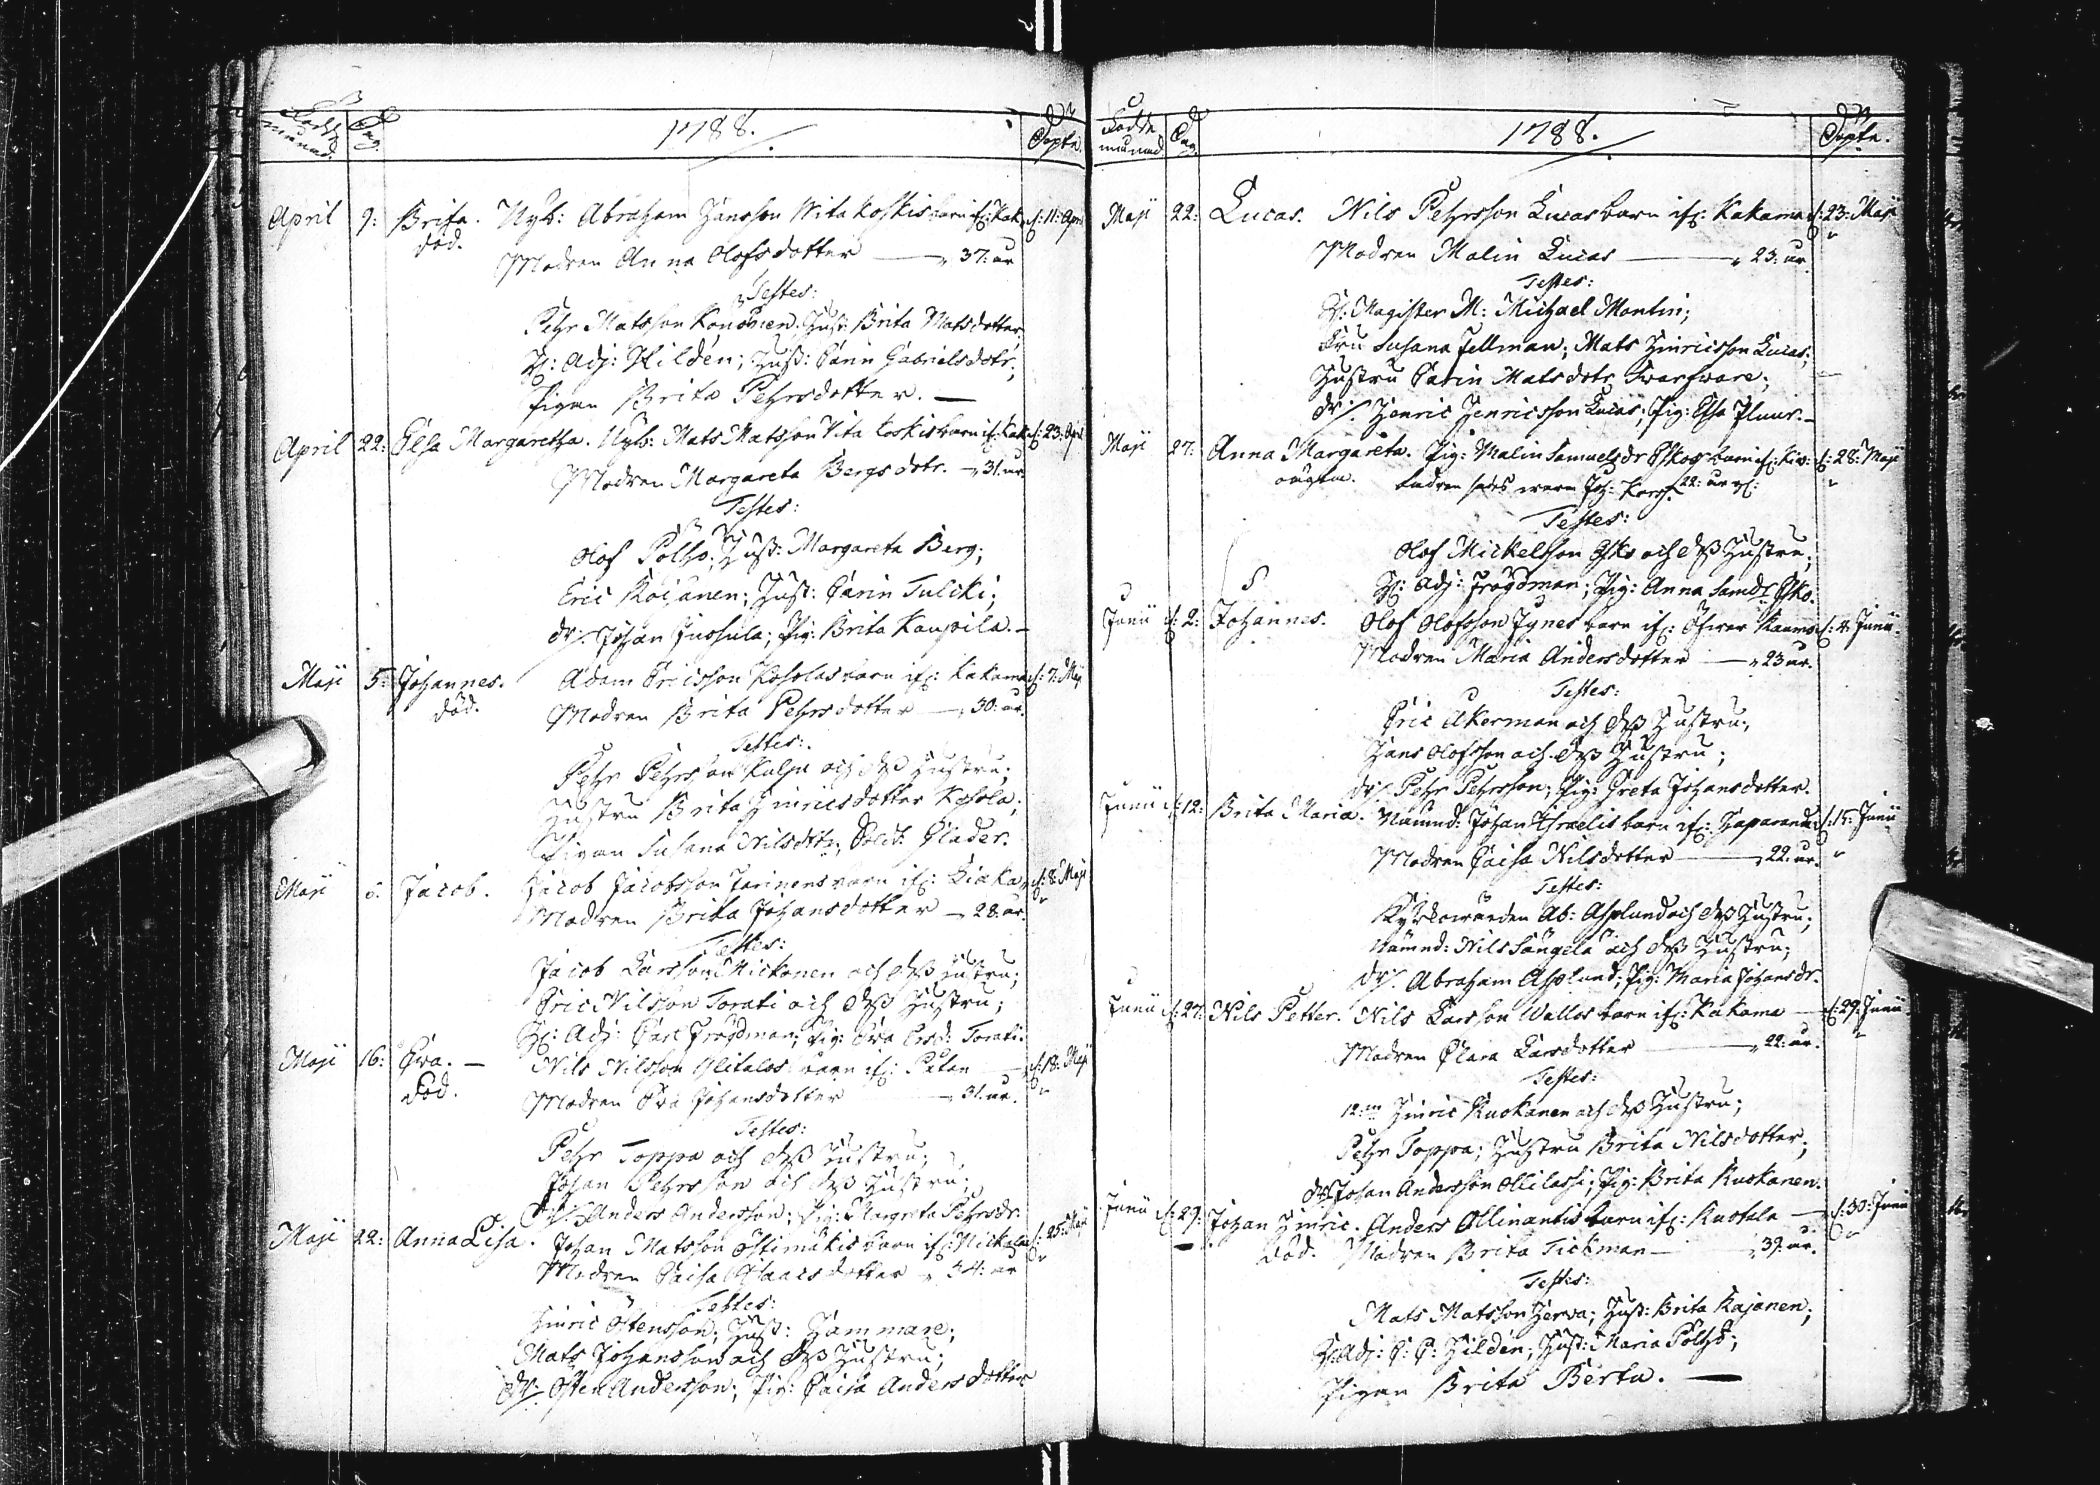 Födde månad. Dag. 1788. Döpte.
April 9: Brita. Nyb: Abraham Hansson Nita Koskis barn if: Kak. d: 11: Apr
död. Modren Anna Olofsdotter — 37: år
Testes:
Pehr Matsson Hust: Brita Matsdotter;
H: Adj: Hildén; Hust: Carin Gabrielsdotr;
Pigan Brita Pehrsdotter. —
April 22: Elsa Margaretha. Nyb: Mats Matsson Nita Koskis barn if: Kak d: 23: Apr
Modren Margareta Bergsdotr. — 31. år
Testes:
Olof Pölhö; Hust: Margareta Berg;
Eric Hust: Carin Tulcki;
dr/. Johan Juohula; Pig: Brita Kaupila. —
Maji 5: Johannes. Adam Ericsson barn if: Kakama d: 7: Maj
död. Modren Brita Pehrsdotter — 30: år.
Testes:
Pehr Pehrsson Kulju och dess Hustru;
Hustru Brita Hinricsdotter
Pigan Susana Nilsdotr;
Maji 6: Jacob. Jacob Jacobsson barn if: d: 8: Maji
Modren Brita Johansdotter — 28: år.
Testes:
Jacob Larsson Mickonen och dess Hustru;
Eric Nilsson Torati och dess Hustru;
H: Adj: Carl Frögdman; Pig: Eva Ersd: Torati.
Maji 16: Eva. — Nils Nilsson Ylitalos barn if: — d: 18: Maji
död. Modren Eva Johansdotter — 31. år.
Testes:
Pehr Toppa och dess Hustru;
Johan Pehrsson och dess Hustru;
Dr/. Anders Andersson; Pig: Margreta Pehrsdr.
Maji 22: Anna Lisa. Johan Matsson barn if: Nickala d: 25: Maji
Modren Caisa Isaacsdotter — 34: år
Testes:
Hinric Östensson; Hust: Hammare;
Mats Johansson och dess Hustru;
dr/. Östen Andersson; Pig: Caisa Andersdotter
Födde månad Dag. 1788. Döpte.
Maji 22: Lucas. Nils Pehrsson Lucas barn if: Kakama d: 23: Maji
Modren Malin Lucas — 23: år.
Testes:
H: Magister M: Michael Montin;
Fru Susana Fellman; Mats Hinricsson Lucas;
Hustru Carin Matsdotr
dr/. Henric Henricsson Lucas; Pig: Elsa
Maji 27: Anna Margareta. Pig: Malin Samuelsdr Esko barn if: Kiv: d: 28: Maji
oägta. fadren sades wara Joh: 22: år
Testes:
Olof Mickelsson Esko och dess Hustru;
H: Adj: Frögdman; Pig: Anna Samdr Esko.
Junii d: 2: Johannes. Olof Olofsson Jynes barn if: Öfver Kauma d: 4: Junii
Modren Maria Andersdotter — 23 år.
Testes:
Eric Åkerman och dess Hustru;
Hans Olofsson och dess Hustru;
dr/. Pehr Pehrsson; Pig: Greta Johansdotter.
Junii d: 12: Brita Maria. Nämnd: Johan Israelis barn if: Haparanda d: 15: Junii
Modren Caisa Nilsdotter — 22. år.
Testes:
Ab: Asplund och dess Hustru;
Nämnd: Nils Sångela och dess Hustru;
dr/. Abraham Asplund; Pig: Maria Johansdr.
Junii d: 27: Nils Petter. Nils Larsson Wallos barn if: Kakama — d: 29: Junii
Modren Clara Larsdotter — 22: år.
Testes:
Hinric Kuokanen och dess Hustru;
Pehr Toppa; Hustru Brita Nilsdotter;
dr/. Johan Andersson Ollilassi; Pig: Brita Kuokanen.
Junii d: 29: Johan Hinric. Anders Ollinantis barn if: — d: 30: Junii
död. Modren Brita Tickman — 39: år.
Testes:
Mats Matsson Herva; Hust: Brita Kajanen;
H: Adj: C: P: Hildén; Hust: Maria Pölhö;
Pigan Brita Berta. —